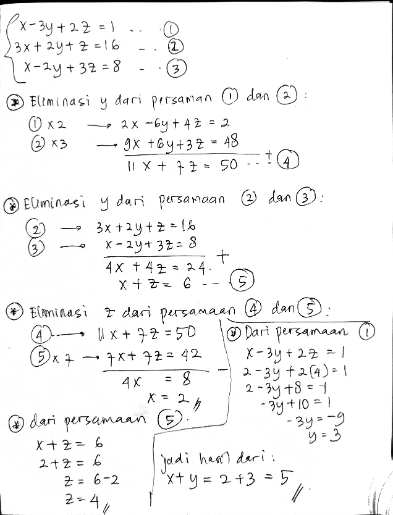 x - 3y + 2z = 1 .. . ①
3x + 2y + z = 16 - .. ②
x - 2y + 3z = 8 - .. ③
* Eliminasi y dari persaman ① dan ② :
① x2 → 2x - 6y + 4z = 2
② x3 → 9x + 6y + 3z = 48 +
11x + 7z = 50 ... ④
* Eliminasi y dari persamaan ② dan ③ :
② → 3x + 2y + z = 16
③ → x - 2y + 3z = 8 +
4x + 4z = 24.
x + z = 6 --- ⑤
* Eliminasi z dari persamaan ④ dan ⑤ :
④ → 11x + 7z = 50
⑤ x 7 → 7x + 7z = 42 -
4x = 8
x = 2 //
* dari persamaan ⑤.
x + z = 6
2 + z = 6
z = 6 - 2
z = 4 //
* Dari persamaan ①
x - 3y + 2z = 1
2 - 3y + 2(4) = 1
2 - 3y + 8 = 1
-3y + 10 = 1
-3y = -9
y = 3
jadi hasil dari :
x + y = 2 + 3 = 5 //